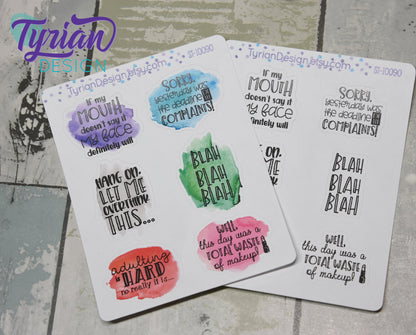 Tyrian
DESIGN
TyrianDesign.etsy.com
ST-10090
IF my
MOUTH
doesn't say it
my FACE
definitely will
SORRY,
yesterday was
the deadline for
COMPLAINTS!
HANG ON.
LET ME
OVERTHINK
THIS...
BLAH
BLAH
BLAH
adulting
is HARD
no really it is...
Well,
this day was a
TOTAL WASTE
of makeup!
TyrianDesign.etsy.com
ST-10090
IF my
MOUTH
doesn't say it
my FACE
definitely will
SORRY,
yesterday was
the deadline for
COMPLAINTS!
BLAH
BLAH
BLAH
Well,
this day was a
TOTAL WASTE
of makeup!